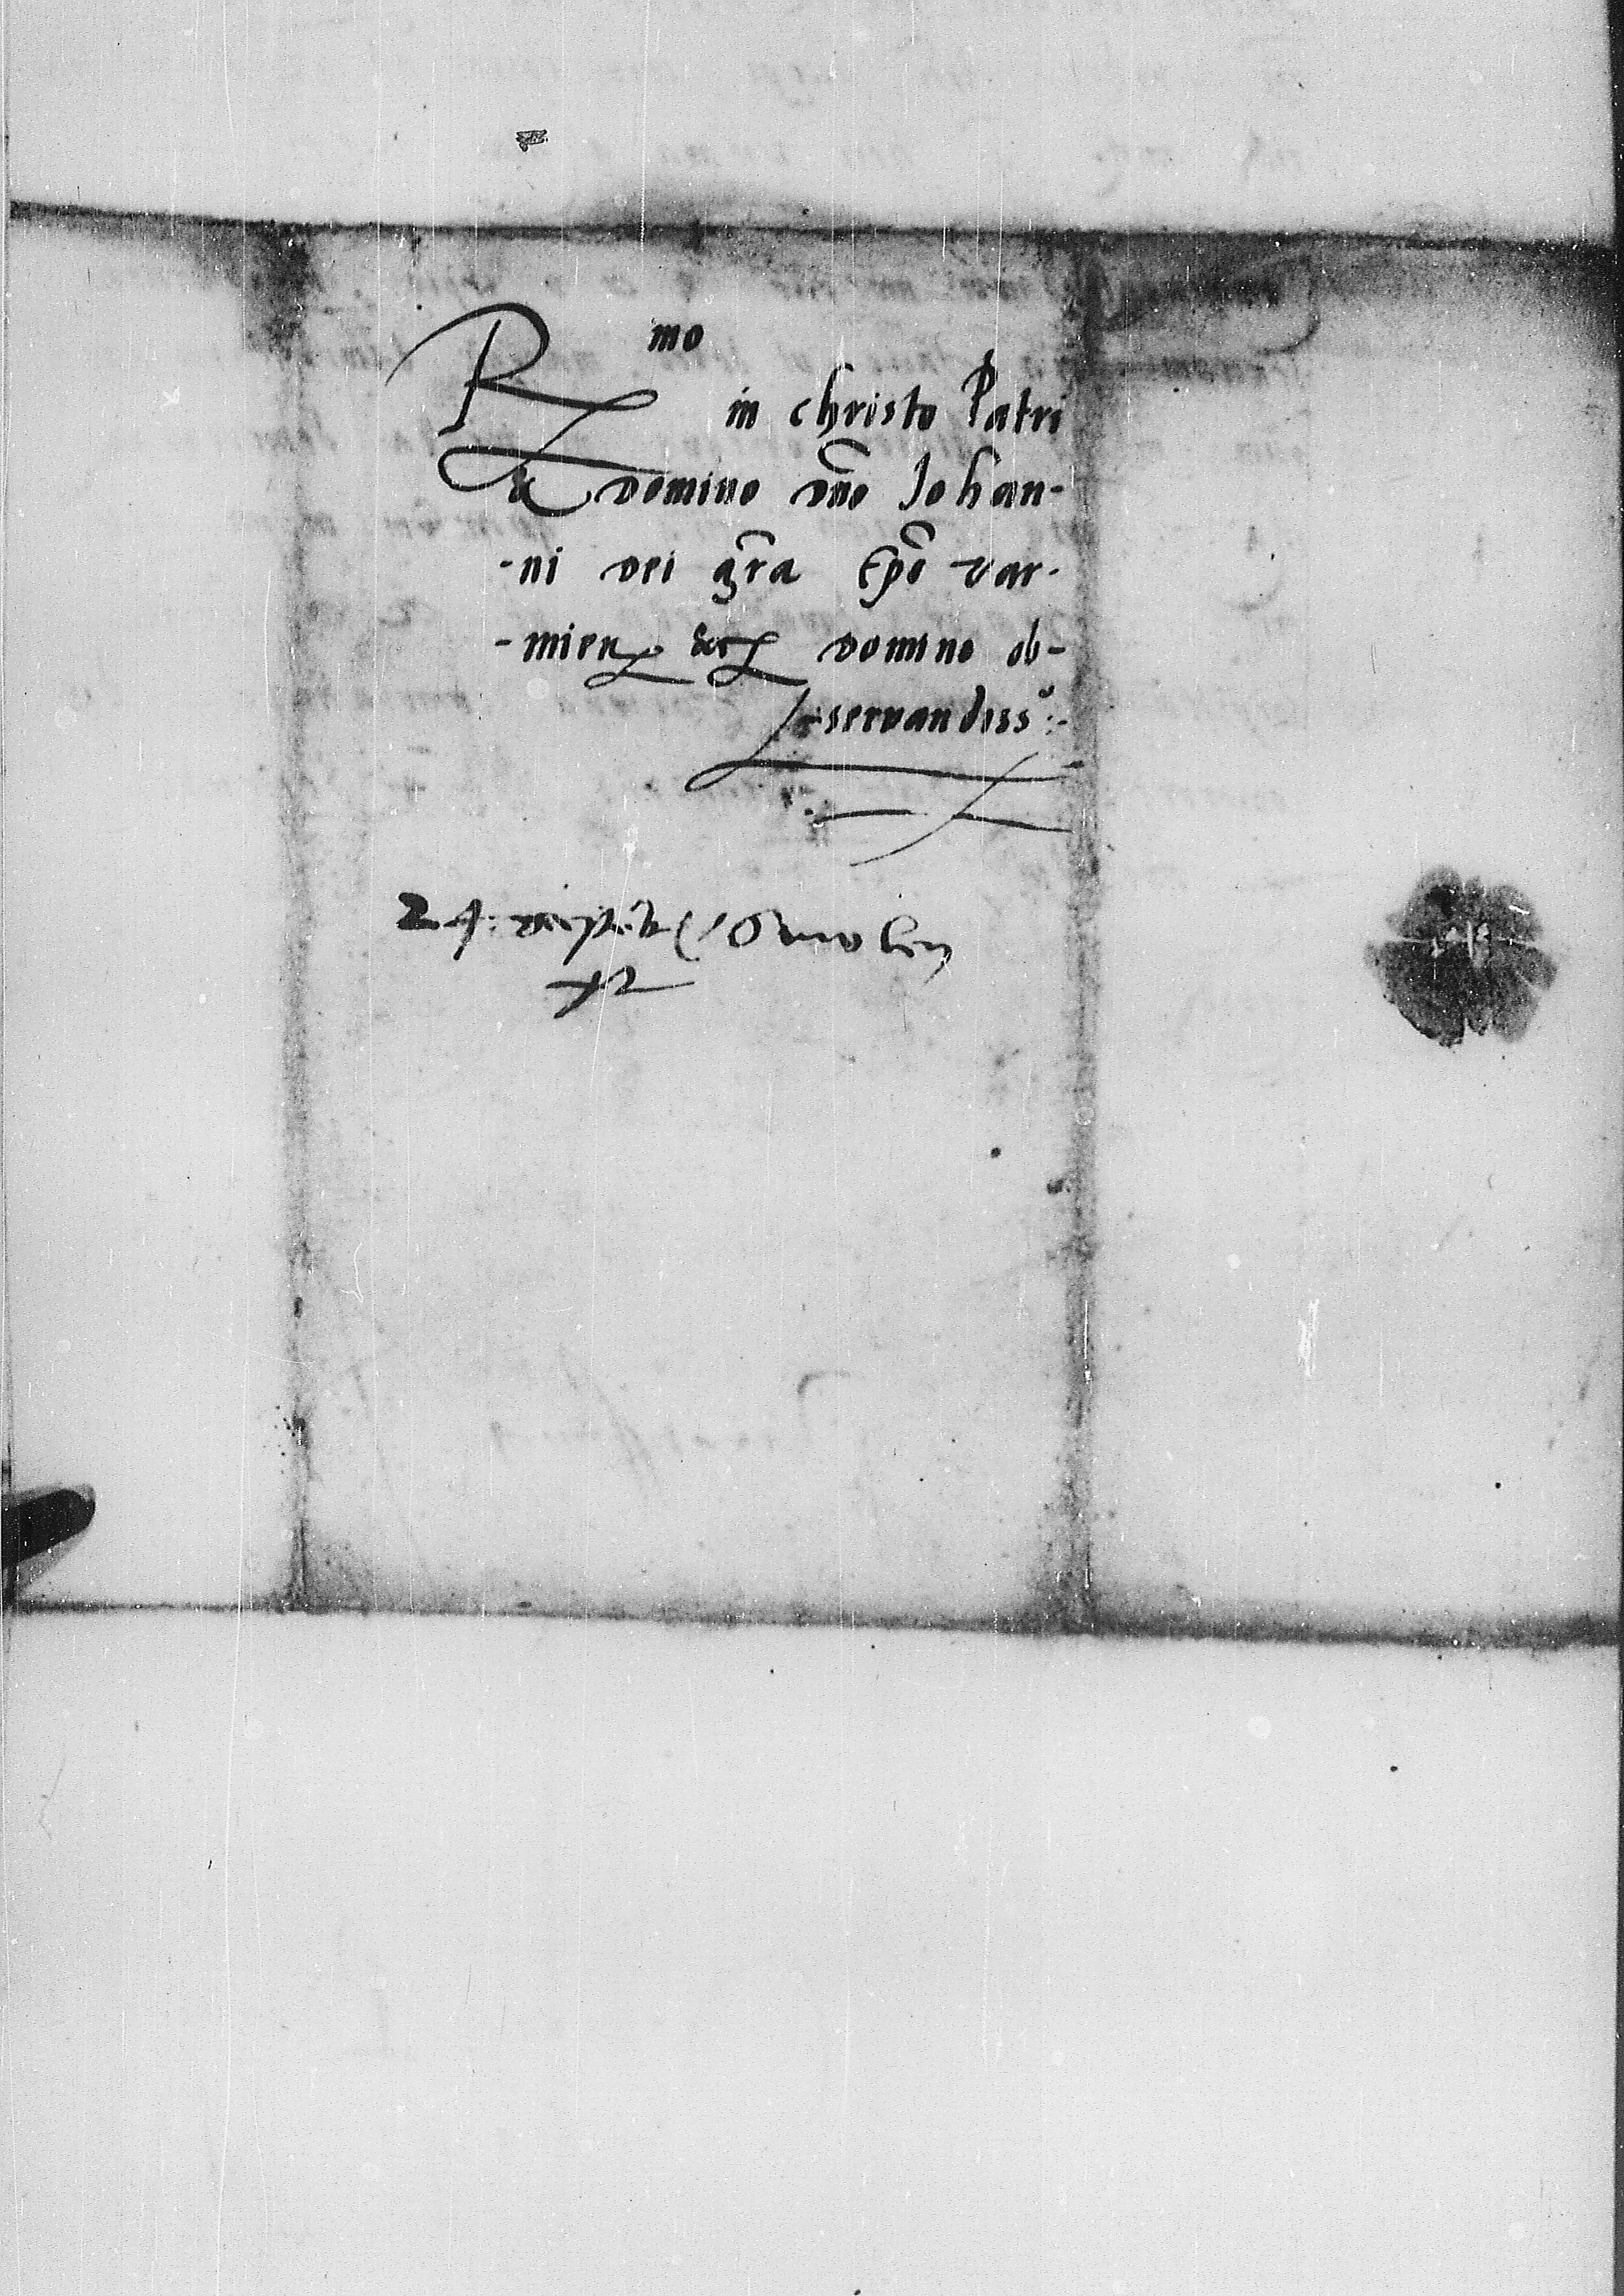 R mo in christo Patri
& domino dño Johan-
-ni dei gr̃a Ep̃o var-
-mien̄ &c domino ob-
servandiss°:-
24